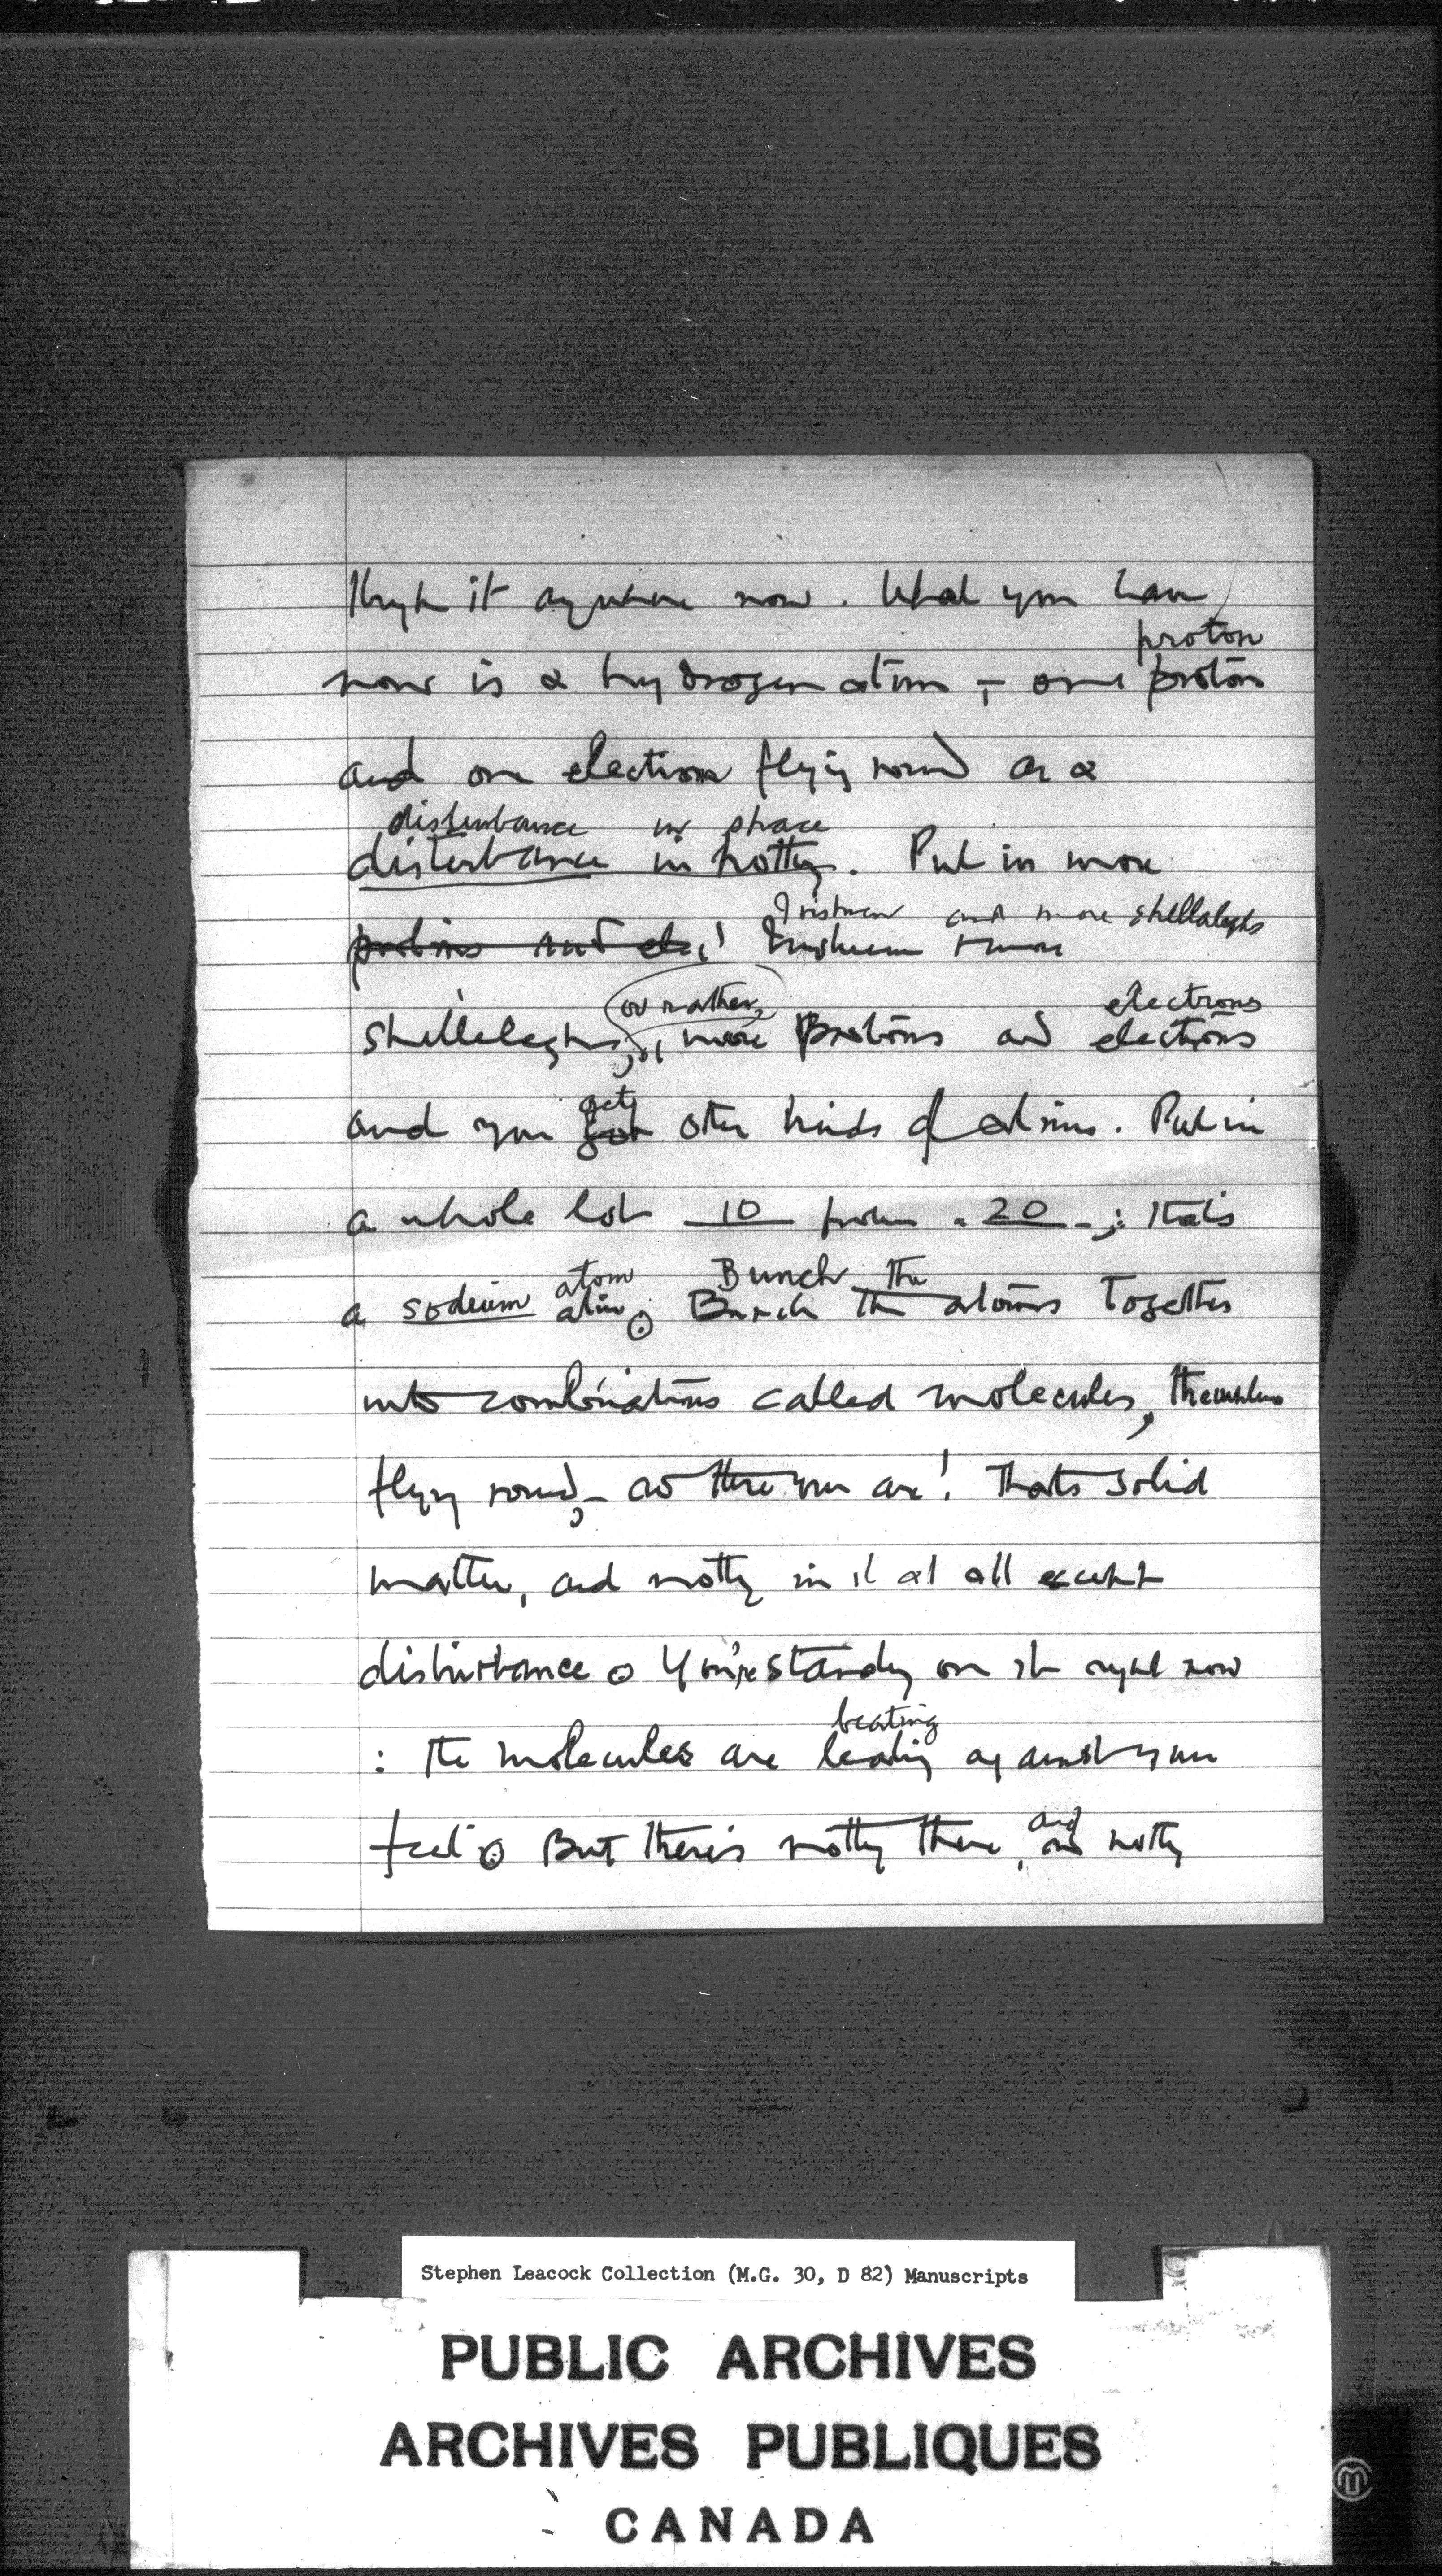 through it anywhere now. What you have
proton
now is a hydrogen atom, – one proton
and one electron flying round as a
disturbance in space
disturbance in nothing. Put in more
Irishmen and more shellalaghs
protons and elec! Irishmen + more
or rather, electrons
shellelaghs, or, more protons and electrons
gets
and you got other kinds of atoms. Put in
a whole lot 10 protons 20 ; that's
atom Bunch the
a sodium atom. Bunch the atoms together
into combinations called molecules, the
flying round, – and there you are! That's solid
matter, and nothing in it at all except
disturbance. You're standing on it right now
beating
: the molecules are beating against your
and
feet. But there's nothing there, and nothing
Stephen Leacock Collection (M.G. 30, D 82) Manuscripts
PUBLIC ARCHIVES
ARCHIVES PUBLIQUES
CANADA